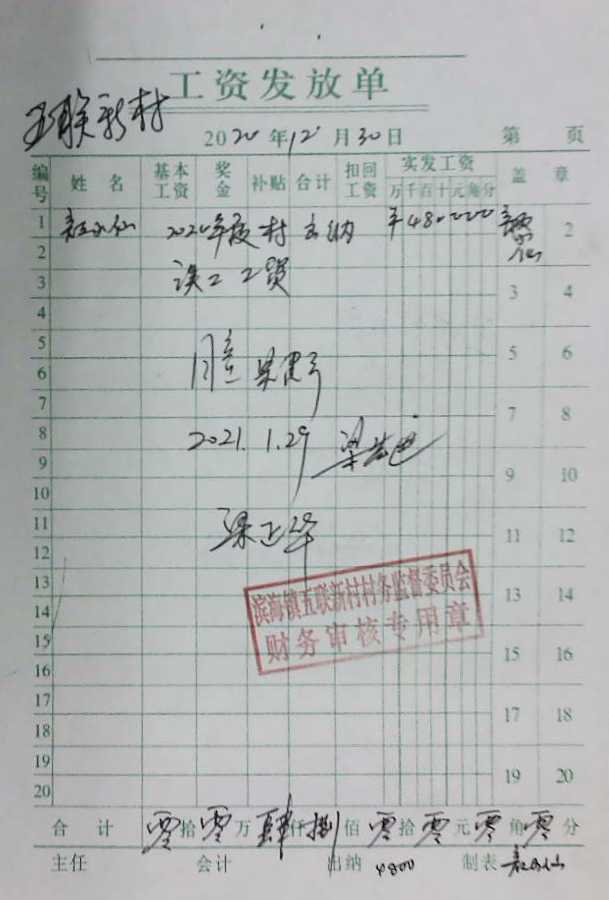 工资发放单
五联新村
2020年12月30日 第 页
编号 姓名 基本工资 奖金 补贴 合计 扣回工资 实发工资 盖章
万千百十元角分
1 2020年度村出纳 ¥480000 2
2
误工工资
3 3 4
4
5 5 6
6 同意
7 7 8
8 2021.1.29
9 9 10
10
11 梁正华 11 12
12
滨海镇五联新村村务监督委员会
财务审核专用章
13 13 14
14
15 15 16
16
17 17 18
18
19 19 20
20
合计 零拾零万肆仟捌佰零拾零元零角零分
主任 会计 出纳 4800 制表